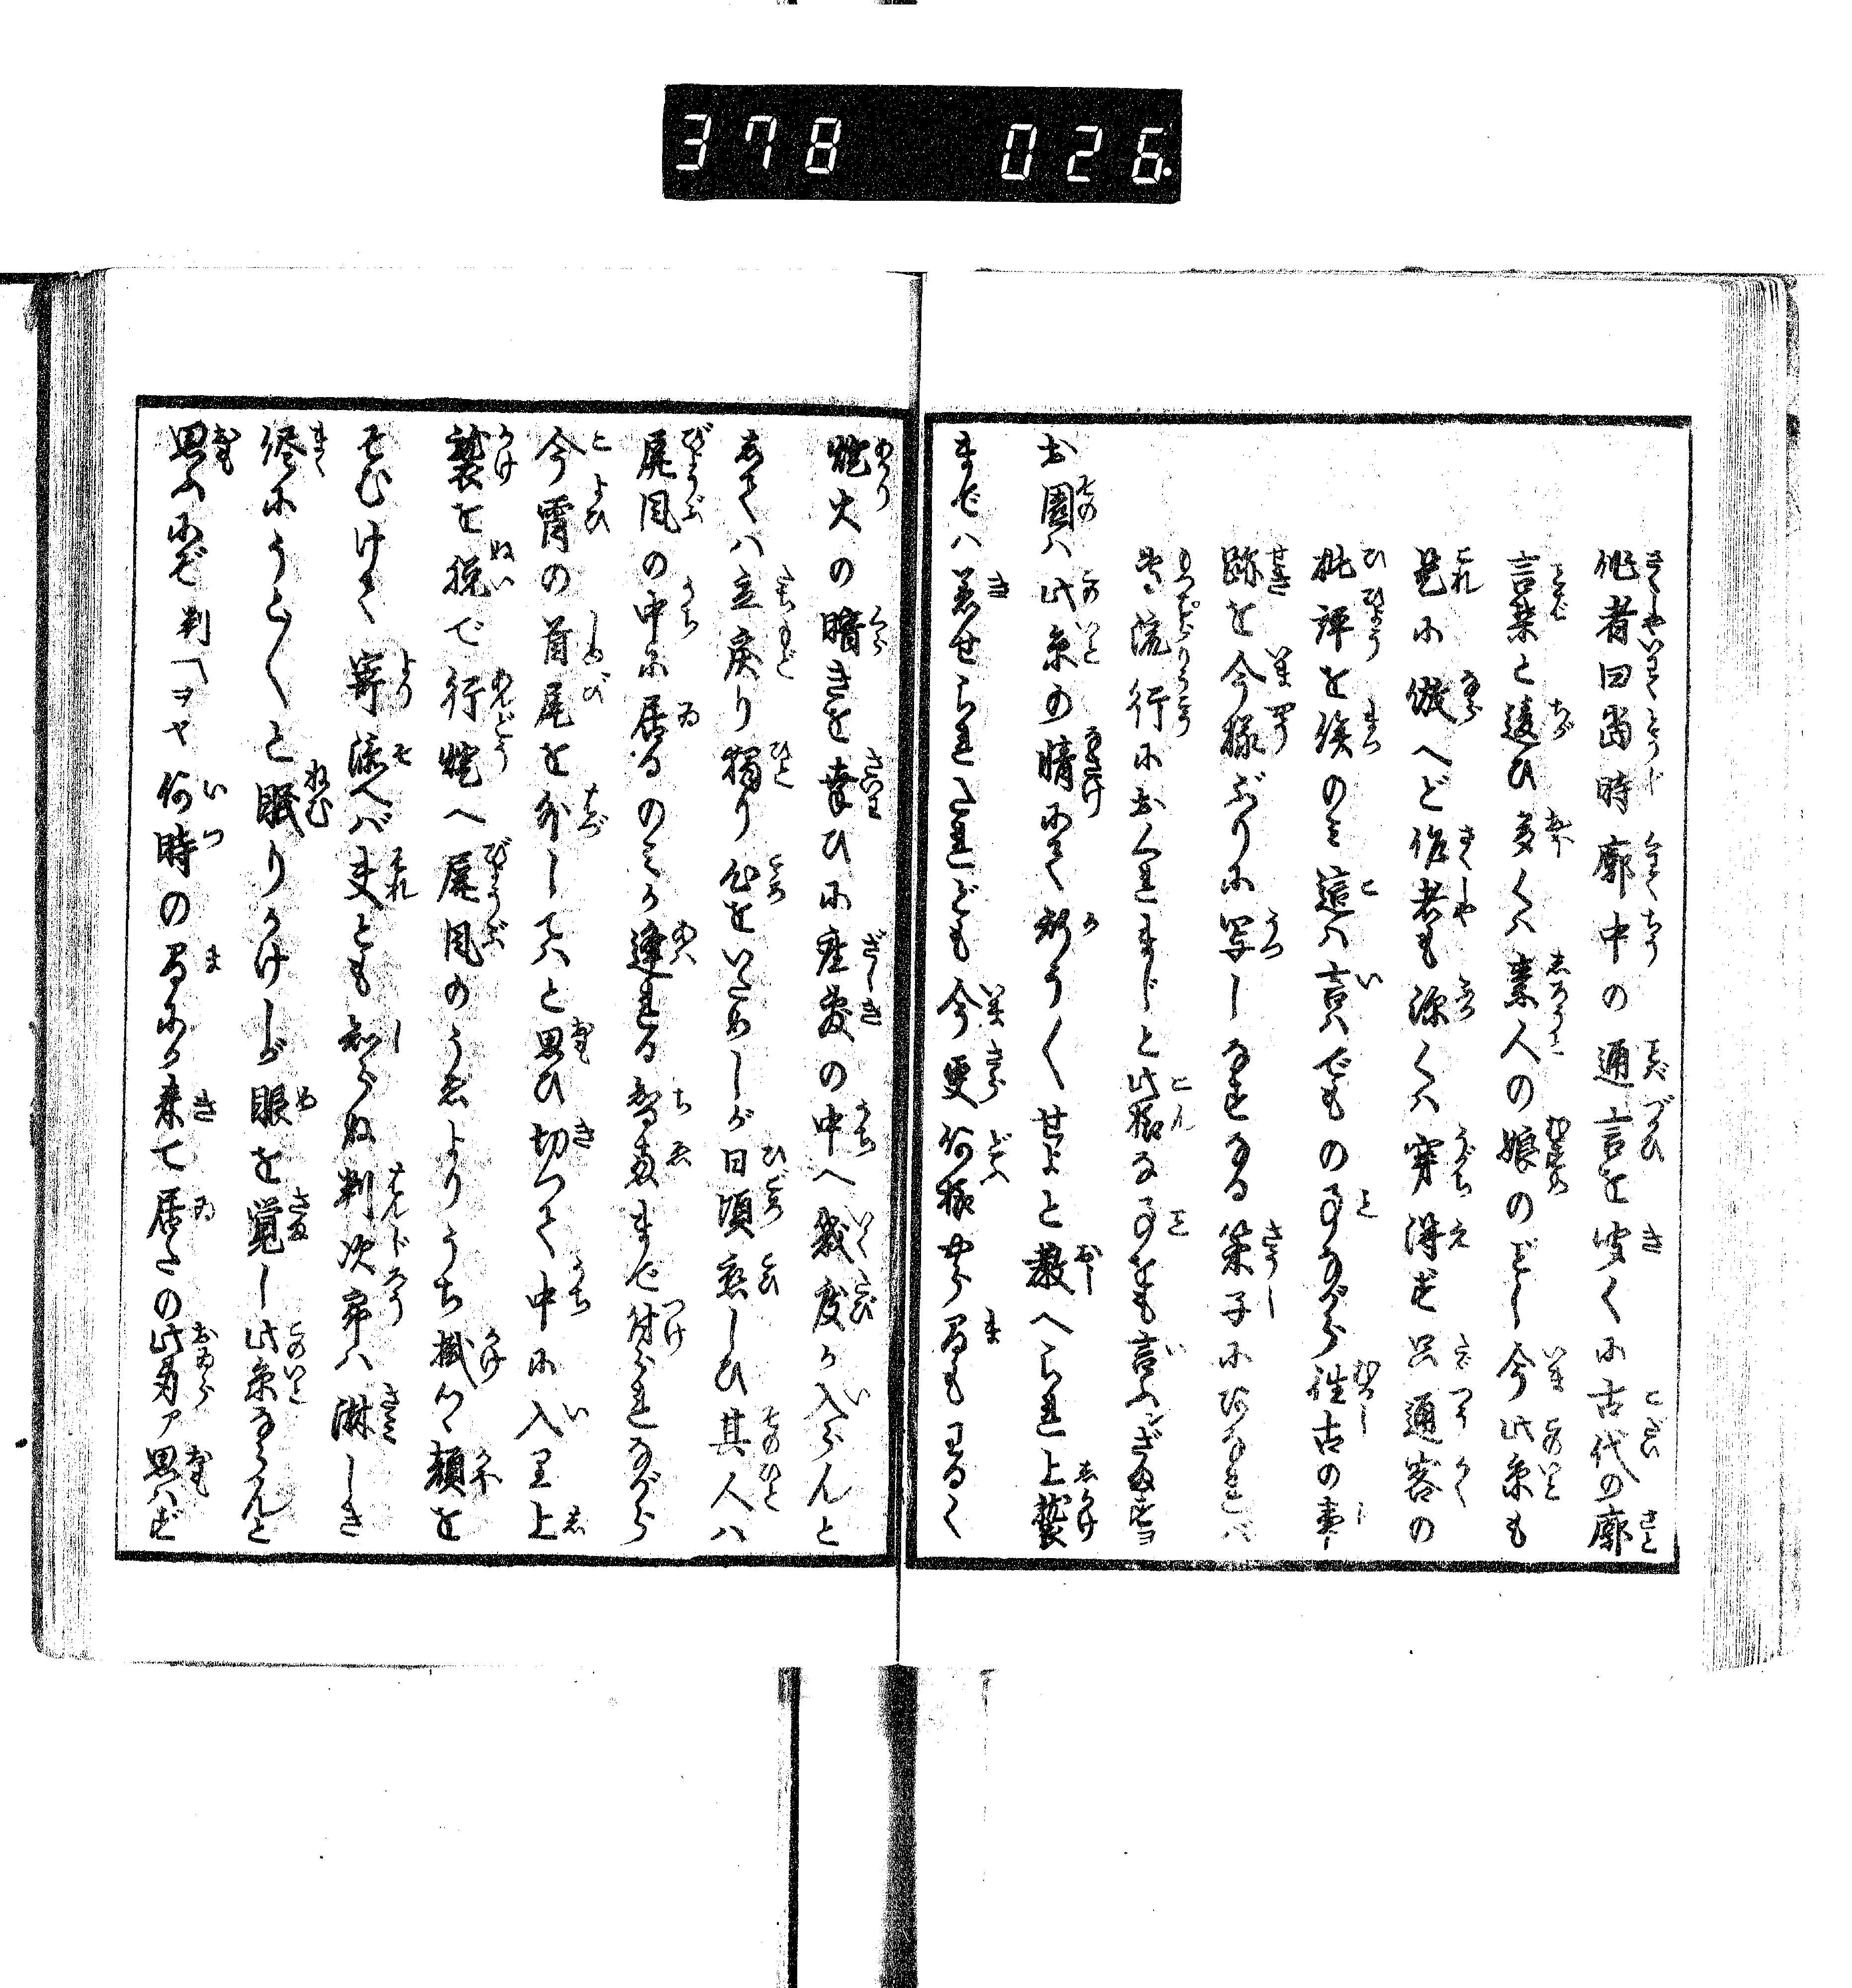 378 026
作者曰當時廓中の通言を聞くに古代の廓
言葉と違ひ多くハ素人の娘のごとし今此糸も
是に倣へど作者も深くハ穿得ず只通客の
批評を俟のミ這ハ言ハでもの事ながら往古の事
跡を今様ぶりに写しなせる策子にしあれバ
當流行におくれまじと此様な事をも言ふざます
お園ハ此糸の情にて斯うくせよと教へられ上襲
までハ着せられたれども今更何様やら間もわるく
燈火の暗きを幸ひに座敷の中へ幾度か入らんと
してハ立戻り獨り心をいためしが日頃恋しひ其人ハ
屏風の中に居るのミか逢るる智恵まで付られながら
今宵の首尾を外してハと思ひ切つて中に入り上
襲を脱で行燈へ屏風のうゑよりうち掛つゝ顔を
そむけて寄添へバ夫とも知らぬ判次郎ハ淋しき
侭にうと〳〵と眠りかけしが眼を覚し此糸ならんと
思ふにぞ判「ヲヤ何時の間にか来て居たの此身ア思ハず